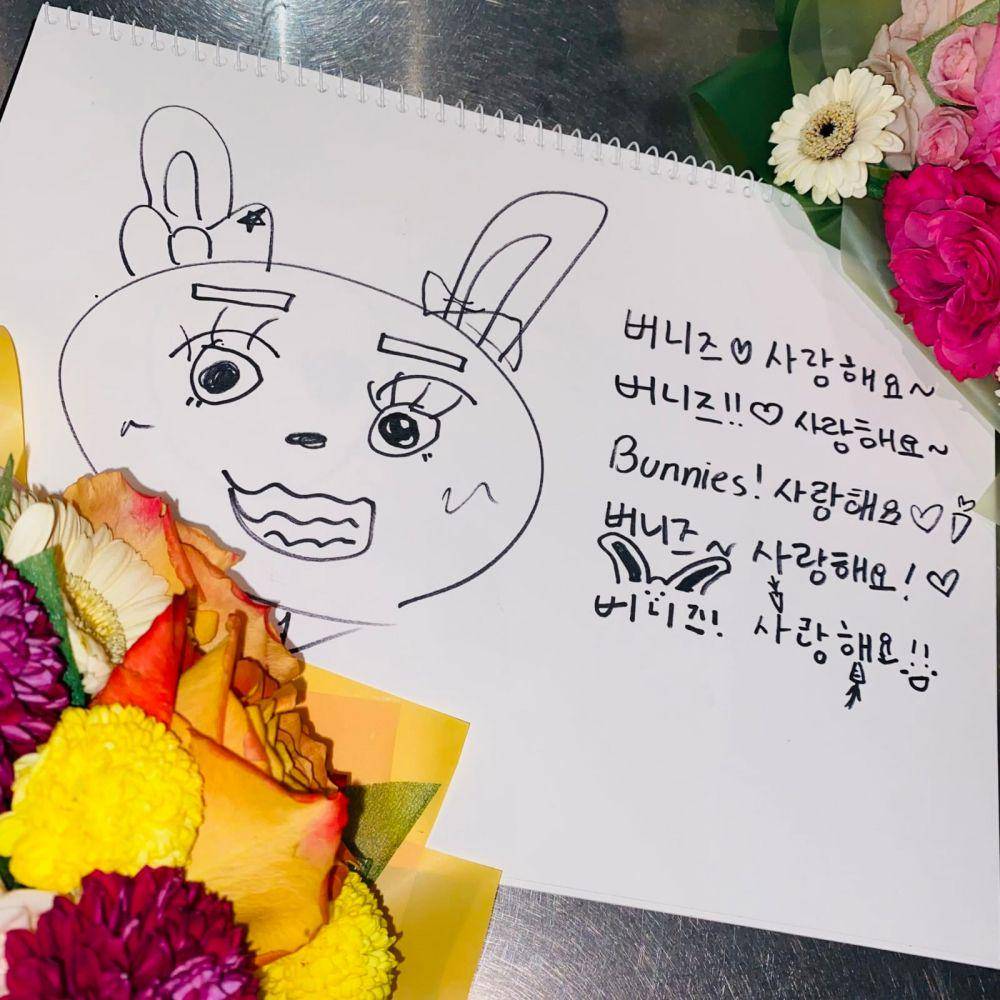 버니즈♡사랑해요~
버니즈!!♡사랑해요~
Bunnies! 사랑해요♡
버니즈~ 사랑해요!♡
버니즈! 사랑해요!!